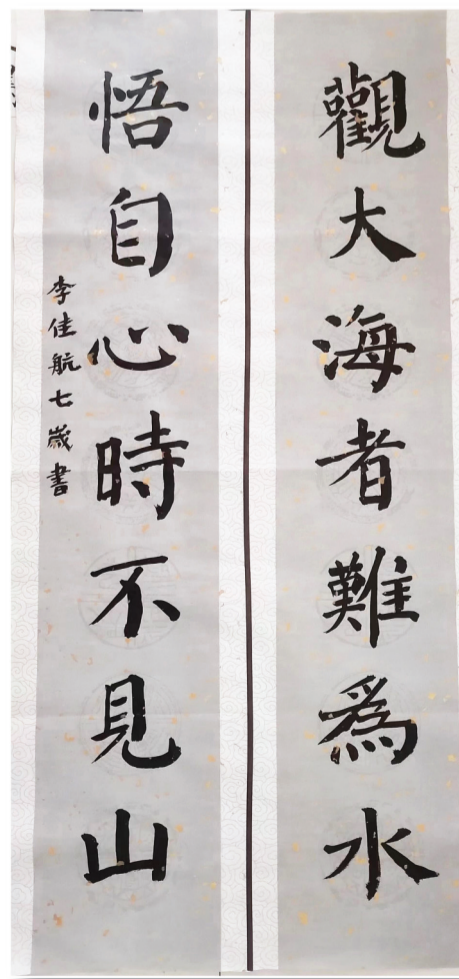 觀大海者難爲水
悟自心時不見山
李佳航七歲書